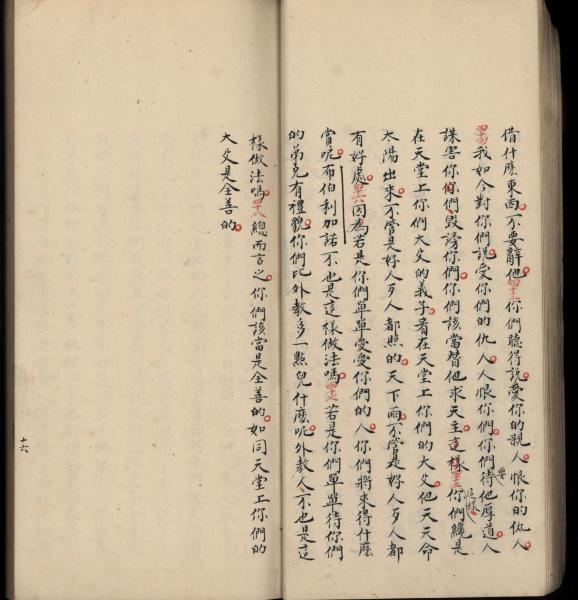 借什麽東西。不要辭他。四十三你們聽得說愛你的親人。恨你的仇人。
四十四我如今對你們說愛你們的仇人。人恨你們。你們要待他厚道。人
誅害你們。毁謗你們。你們該當替他求天主。這樣四十五你們纔是
在天堂上你們大父的義子。看在天堂上你們的大父。他天天命
太陽出來。不管是好人歹人都照的。天下雨。不管是好人歹人都
有好處。四十六因為若是你們單單受愛你們的人。你們將來得什麽
賞呢。布伯利加諾不也是這樣做法嗎。四十七若是你們單單待你們
的弟兄有禮貌。你們比外教多一點兒什麽呢。外教人不也是這
樣做法嗎。四十八總而言之。你們該當是全善的。如同天堂上你們的
大父是全善的。
十六